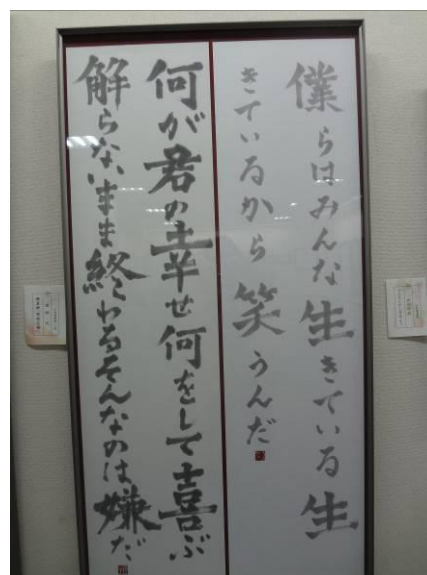 僕らはみんな生きている生
きているから笑うんだ
何が君の幸せ何をして喜ぶ
解らないまま終わるそんなのは嫌だ